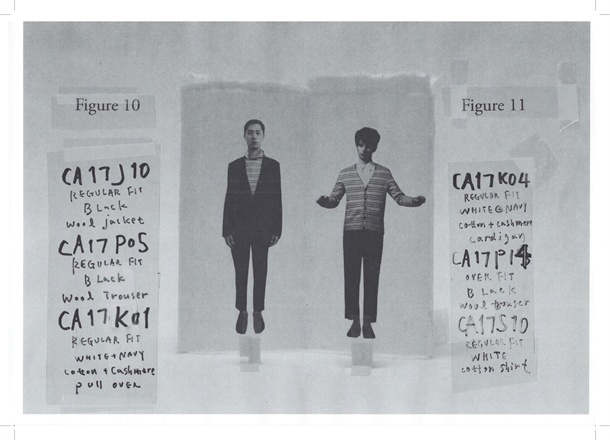 Figure 10
CA17J10
REGULAR FIT
BLack
wool jacket
CA17P05
REGULAR FIT
BLack
Wool Trouser
CA17K01
REGULAR FIT
WHITE+NAVY
cotton + Cashmere
pull over
Figure 11
CA17K04
REGULAR FIT
WHITE@NAVY
cotton + cashmere
cardigan
CA17P14
OVER FIT
BLack
wool trouser
CA17S10
REGULOR FIT
WHITE
cotton shirt